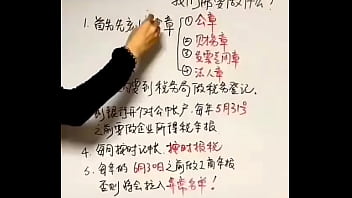 我们需要做什么?
1. 首先先 章 ① 公章
② 财务章
③ 发票专用章
④ 法人章
需要到税务局做税务登记.
到银行开个对公帐户. 每年5月31号
之前要做企业所得税年报
4. 每月按时记帐. 按时报税
5. 每年的6月30日之前做工商年报
否则将会拉入异常名单!